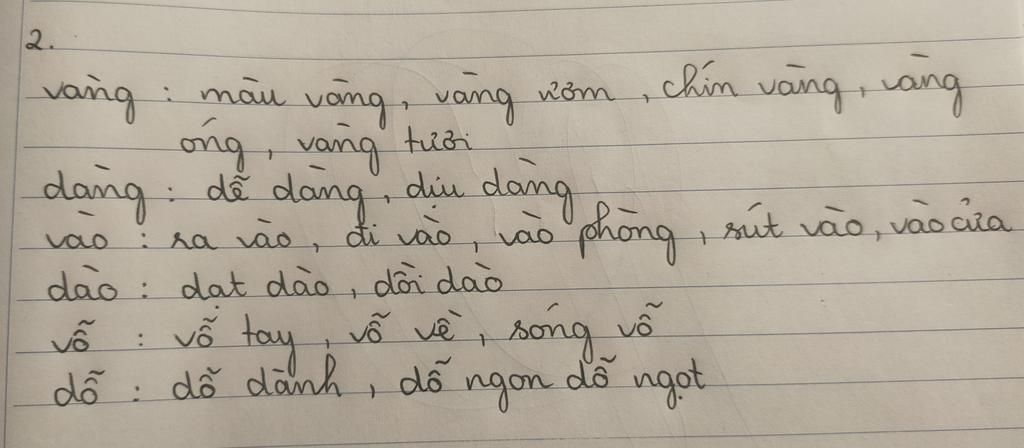 2.
vàng : màu vàng, vàng ươm, chín vàng, vàng
óng, vàng tươi
dàng : dễ dàng, dịu dàng
vào : ra vào, đi vào, vào phòng, rút vào, vào cửa
dào : dạt dào, dồi dào
vỗ : vỗ tay, vỗ về, sóng vỗ
dỗ : dỗ dành, dỗ ngon dỗ ngọt